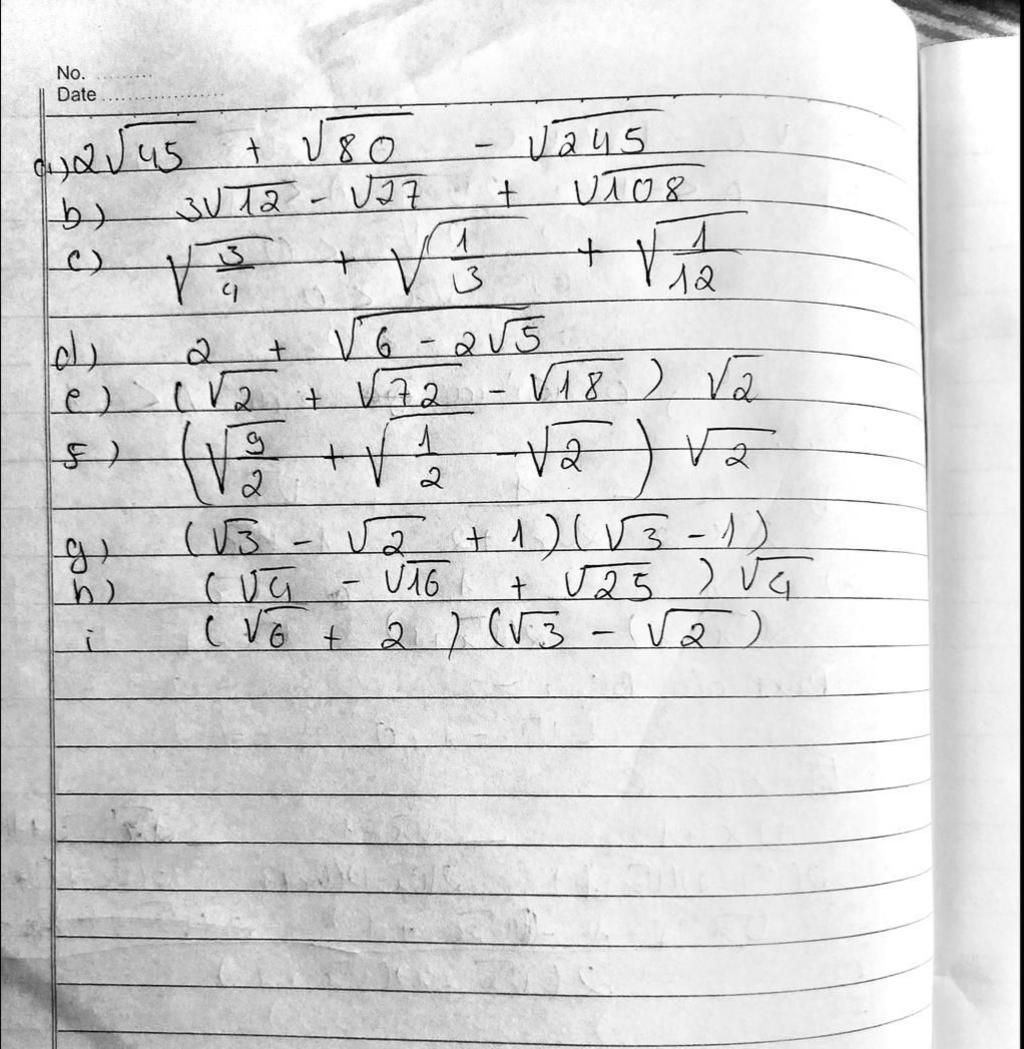 No. ..........
Date ......................
a,) 2√45 + √80 - √245
b) 3√12 - √27 + √108
c) √(3/4) + √(1/3) + √(1/12)
d) 2 + √(6 - 2√5)
e) (√2 + √72 - √18) √2
f) (√(9/2) + √(1/2) - √2) √2
g) (√3 - √2 + 1)(√3 - 1)
h) (√4 - √16 + √25) √4
i (√6 + 2)(√3 - √2)